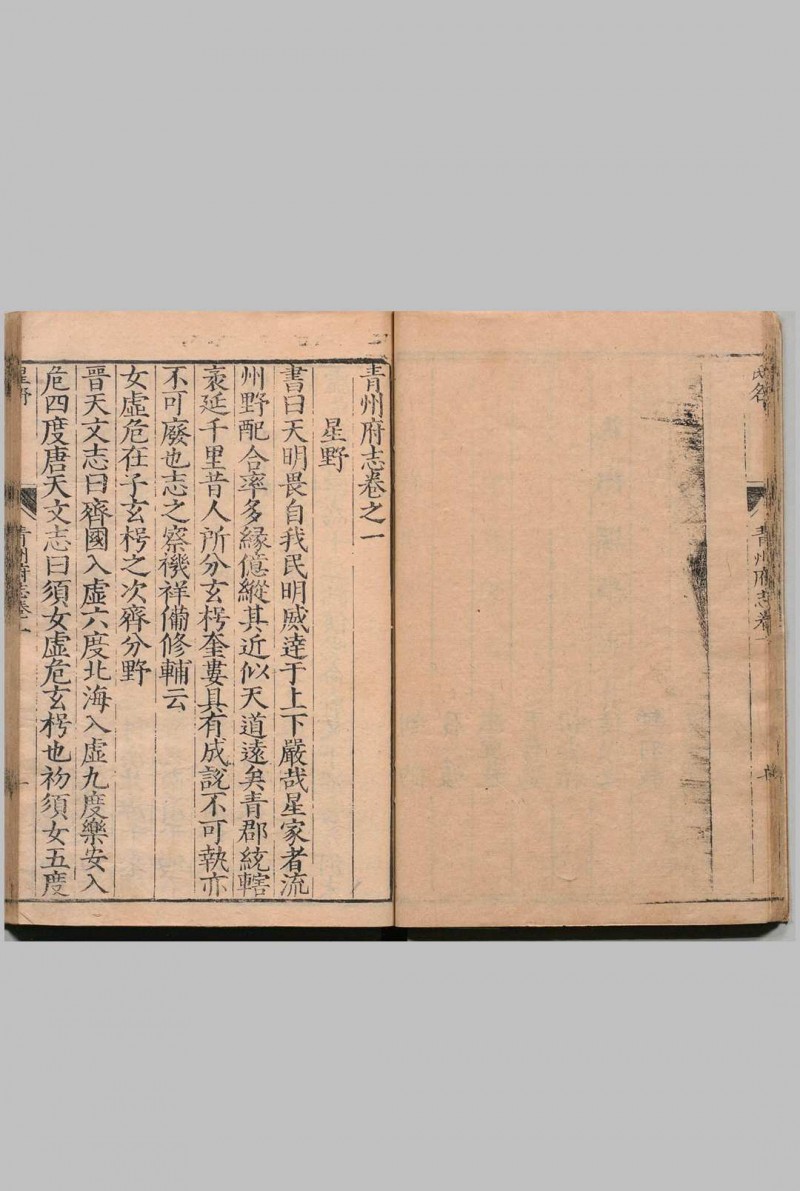 氏名
青州府志卷一
青州府志卷之一
星野
書曰天明畏自我民明威達于上下嚴哉星家者流
州野配合率多緣億縱其近似天道遠矣青郡統轄
袤延千里昔人所分玄枵奎婁具有成説不可執亦
不可廢也志之察禨祥備修輔云
女虛危在子玄枵之次齊分野
晉天文志曰齊國入虛六度北海入虛九度樂安入
危四度唐天文志曰須女虛危玄枵也初須女五度
星野
青州府志卷一
一